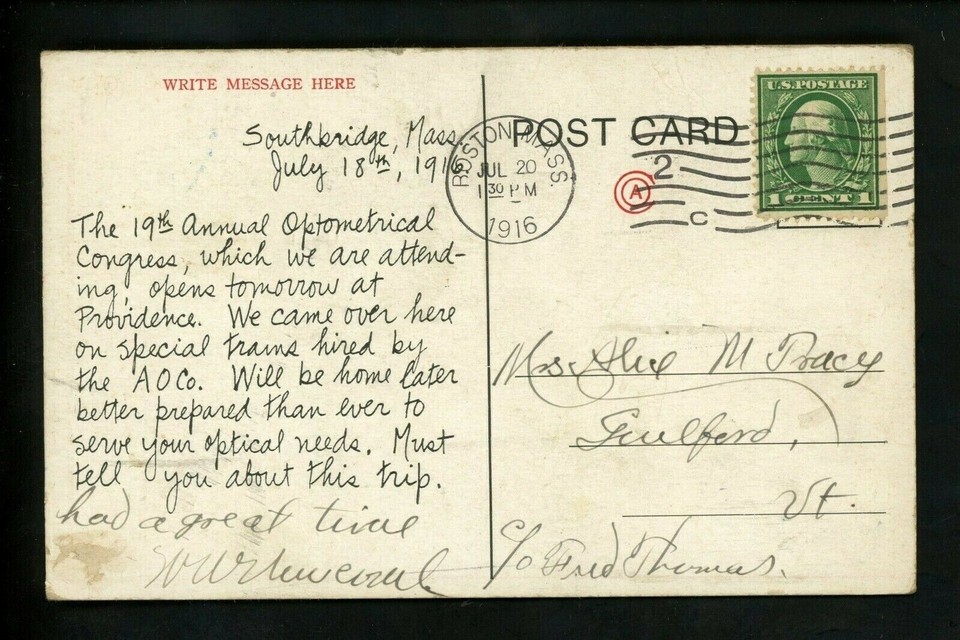 WRITE MESSAGE HERE
Southbridge, Mass
July 18th, 1916
The 19th Annual Optometrical
Congress, which we are attend-
ing, opens tomorrow at
Providence. We came over here
on special trains hired by
the AOCo. Will be home later
better prepared than ever to
serve your optical needs. Must
tell you about this trip.
had a great time
POST CARD
BOSTON, MASS.
JUL 20
1 30 PM
1916
2
A
C
U.S. POSTAGE
1 CENT 1
Mrs M Tracy
Guilford,
Vt.
c/o Fred Thomas.